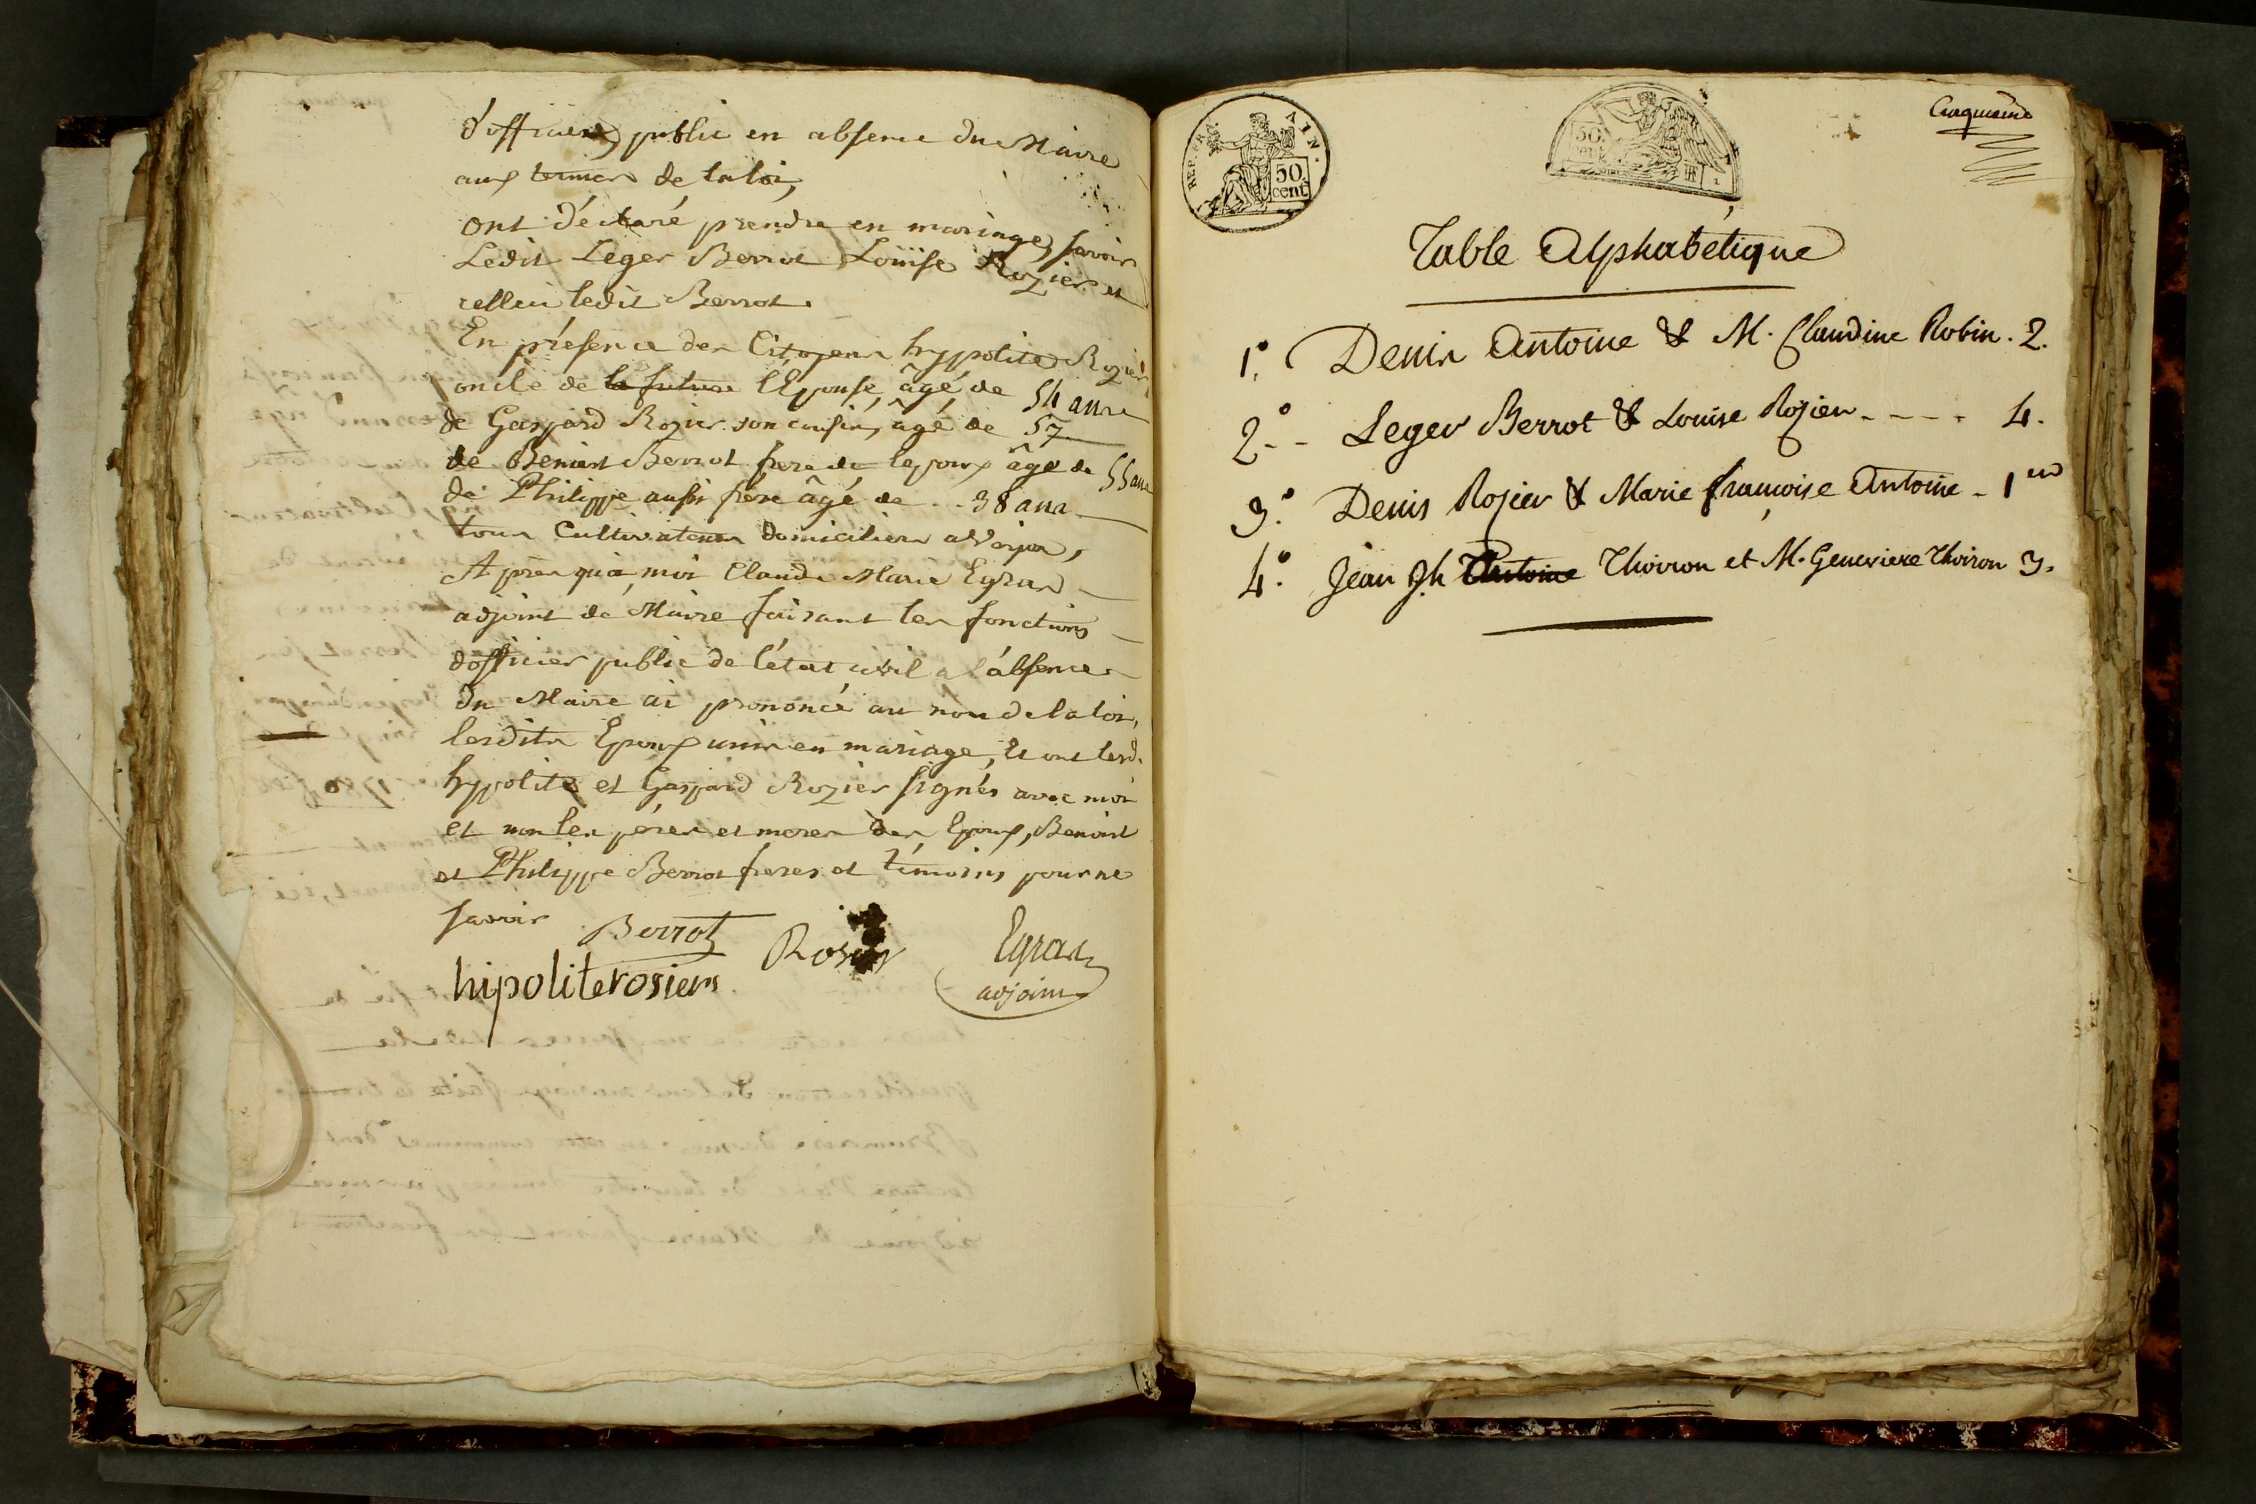 d'officier public en absence du Maire
aux termes de la loi,
ont déclaré prendre en mariage, savoir
Ledit Leger Berrot Louise Rozier et
celleci ledit Berrot.
En présence des Citoyens hyppolite Rozier
oncle de la future l'Epouse, âgé de 54 ans
de Gaspard Rozier son cousin, âgé de 57
de Benoist Berrot frere de lepoux âgé de 55 ans
de Philippe aussi frere âgé de .. 38 ans
tous Cultivateurs domiciliers a
Après quoi, moi Claude Marie Egraz
adjoint de Maire faisant les fonctions
dofficier public de l'état civil a l'absence
du Maire ai prononcé au nom de la loi,
lesdits Epoux unis en mariage, et ont lesd.
hyppolite et Gaspard Rozier signés avec moi
et non les péres et meres des Epoux, Benoist
et Philippe Berrot freres et témoins pour ne
savoir Berrot Rosier Egraz
hipolite rosiers adjoint
REP. FRA. AIN.
50 cent.
50 cent.
Cinquieme
Table Alphabétique
1.° Denis Antoine & M. Claudine Robin. 2.
2.° Leger Berrot & Louise Rozier - - - - 4.
3.° Denis Rozier & Marie françoise Antoine - 1er
4.° Jean Jh Antoine Thoiron et M. Genevieve Thoiron 3.